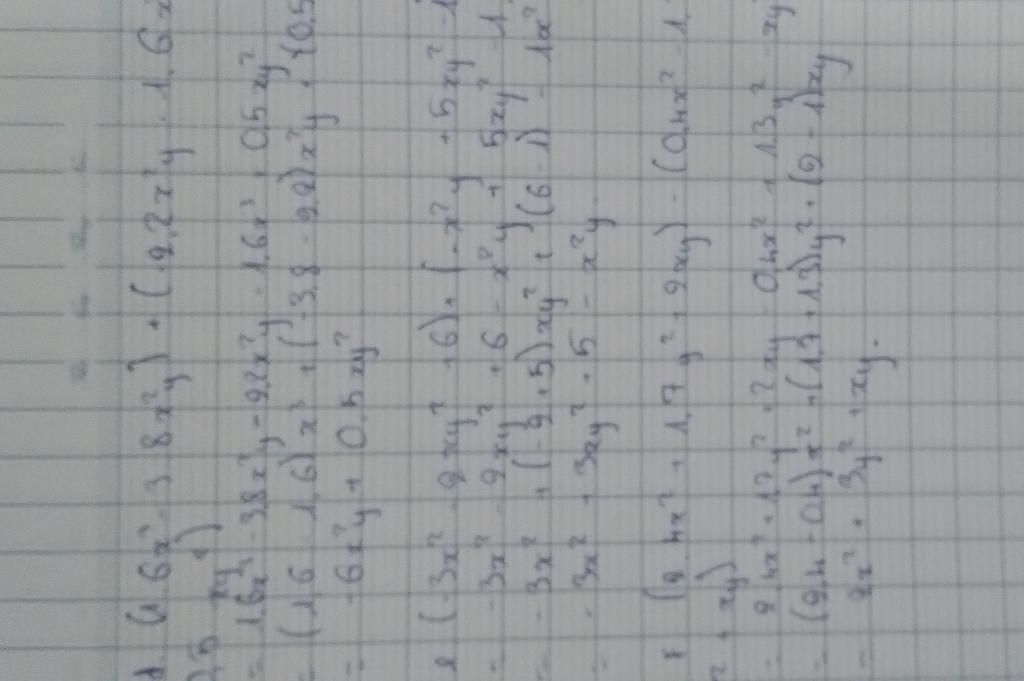 d (1,6x³ - 3,8x²y) + (-2,2x²y - 1,6x
0,5 xy²)
= 1,6x³ - 3,8x²y - 2,2x²y - 1,6x³ + 0,5xy²
= (1,6 - 1,6)x³ + (-3,8 - 2,2)x²y + (0,5
= -6x²y + 0,5xy²
e (-3x² - 2xy² + 6) + (-x²y + 5xy² - 1
= -3x² - 2xy² + 6 - x²y + 5xy² - 1
= -3x² + (-2+5)xy² + (6-1) - 1x²
= -3x² + 3xy² + 5 - x²y.
f (2,4x² + 1,7y² + 2xy) - (0,4x² - 1,
² + xy)
= 2,4x² + 1,7y² + 2xy - 0,4x² + 1,3y² - xy
= (2,4 - 0,4)x² + (1,7 + 1,3)y² + (2 - 1)xy
= 2x² + 3y² + xy.